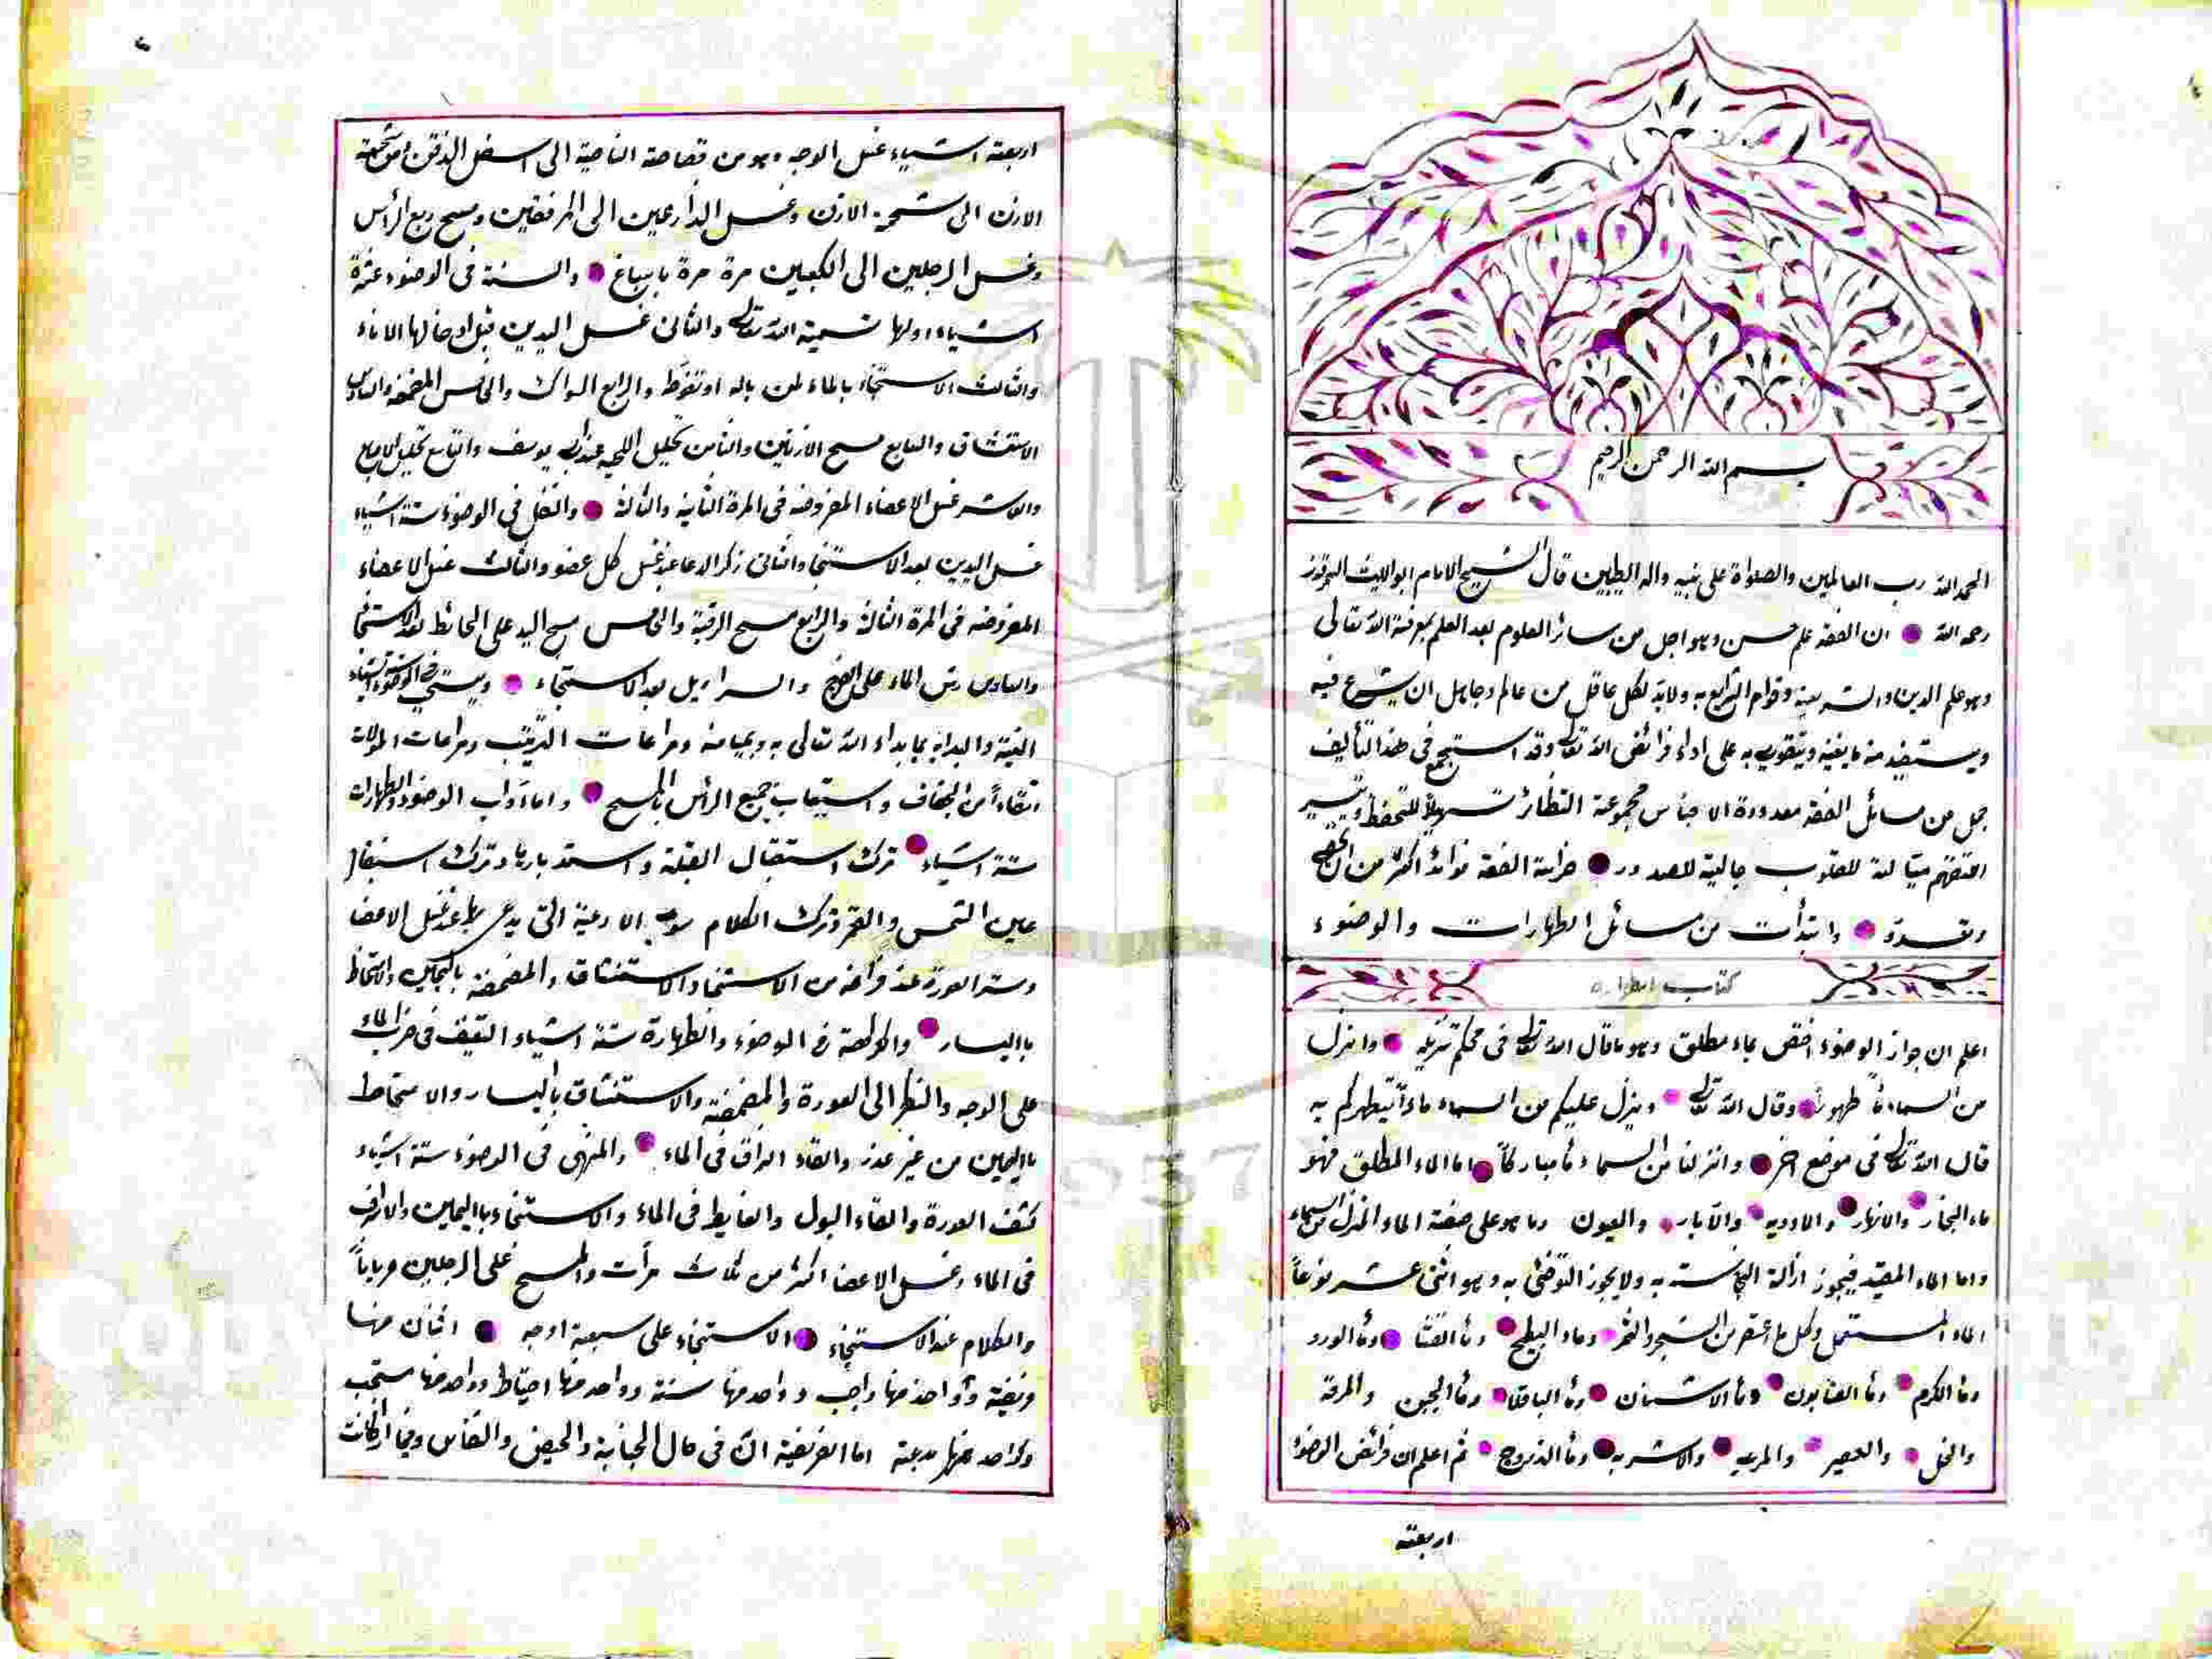 بسم الله الرحمن الرحيم
الحمد لله رب العالمين والصلواة على نبيه واله الطيبين قال الشيخ الامام ابو الليث السمرقندي
رحمه الله ان الفقه علم حسن وهو اجل من سائر العلوم بعد العلم بمعرفة الله تعالى
وهو علم الدين والشريعة وقوام الشرايع به ولابد لكل عاقل من عالم وجاهل ان يشرع فيه
ويستفيد منه ما يغنيه ويتقوى به على اداء فرائض الله تعالى وقد استجمع في هذا التأليف
جمل من مسائل الفقه معدودة الاجناس مجموعة النظائر تسهيلاً للتحفظ وتيسير
التفهم ميالة للقلوب جالية للصدور خزانة الفقه فوائد اكثر من ان يحصى
وتعد وابتدأت من مسائل الطهارات والوضوء
كتاب الطهارة
اعلم ان جواز الوضوء اختص بماء مطلق وهو ما قال الله تعالى في محكم تنزيله وانزل
من السماء ماً طهوراً وقال الله تعالى وينزل عليكم من السماء ماءاً ليطهركم به
قال الله تعالى في موضع اخر وانزلنا من السماء مأ مباركاً اما الماء المطلق فهو
ماء البحار والانهار والاودية والآبار والعيون وما هو على صفة الماء المنزل من السماء
واما الماء المقيد فيجوز ازالة النجاسة به ولا يجوز التوضئ به وهو اثنى عشر نوعاً
الماء المستعمل وكل ما اعتصر من الشجر والثمر وماء البطيح ومأ القثا ومأ الورد
ومأ الكرم ومأ الصابون ومأ الاشنان ومأ الباقلا ومأ الجبن والمرقة
والخل والعصير والمربه والاشربه ومأ الزردج ثم اعلم ان فرائض الوضوء
اربعة
اربعة اشياء غسل الوجه وهو من قصاصة الناصية الى اسفل الذقن ومن شحمة
الاذن الى شحمة الاذن وغسل الذارعين الى المرفقين ومسح ربع الرأس
وغسل الرجلين الى الكعبين مرة مرة باسباغ والسنة في الوضوء عشرة
اشياء اولها تسمية الله تعالى والثاني غسل اليدين قبل ادخالها الاناء
والثالث الاستنجاء بالماء لمن باله او تغوط والرابع السواك والخامس المضمضة والسادس
الاستنشاق والسابع مسح الاذنين والثامن تخليل اللحية عند ابي يوسف والتاسع تخليل الاصابع
والعاشر غسل الاعضاء المفروضه في المرة الثانية والثالثة والنفل في الوضوء ستة اشياء
غسل اليدين بعد الاستنجا والثاني ذكر الدعا عند غسل كل عضو والثالث غسل الاعضاء
المفروضه في المرة الثالثة والرابع مسح الرقبة والخامس مسح اليد على الحائط بعد الاستنجا
والسادس رش الماء على الفرج والسراويل بعد الاستنجاء ويستحب في الوضوء ستة اشياء
النية والبداية بما بداء الله تعالى به وبميامنه ومراعات الترتيب ومراعات الموالات
اتقاءاً من الجفاف واستيعاب جميع الرأس بالمسح واما آداب الوضوء والطهارات
ستة اشياء ترك استقبال القبلة واستدبارها وترك استقبال
عين الشمس والقمر وترك الكلام سوى الادعية التي يدعى بها عند غسل الاعضا
وستر العورة عند فراغه من الاستنجا والاستنشاق والمضمضة باليمين والامتخاط
باليسار والكراهة في الوضوء والطهارة ستة اشياء التعنيف في ضرب الماء
على الوجه والنظر الى العورة والمضمضة والاستنشاق باليسار والامتخاط
باليمين من غير عذر والقاء البزاق في الماء والمنهى في الوضوء ستة اشياء
كشف العورة والقاء البول والغايط في الماء والاستنجاء باليمين والاسراف
في الماء وغسل الاعضا اكثر من ثلاث مرأت والمسح على الرجلين عرياناً
والكلام عند الاستنجاء الاستنجاء على سبعة اوجه اثنان منها
فريضة وواحد منها واجب وواحد منها سنة وواحد منها احتياط وواحد منها مستحب
وواحد منها بدعة اما الفريضة ان في حال الجنابة والحيض والنفاس وفيما اذا كانت